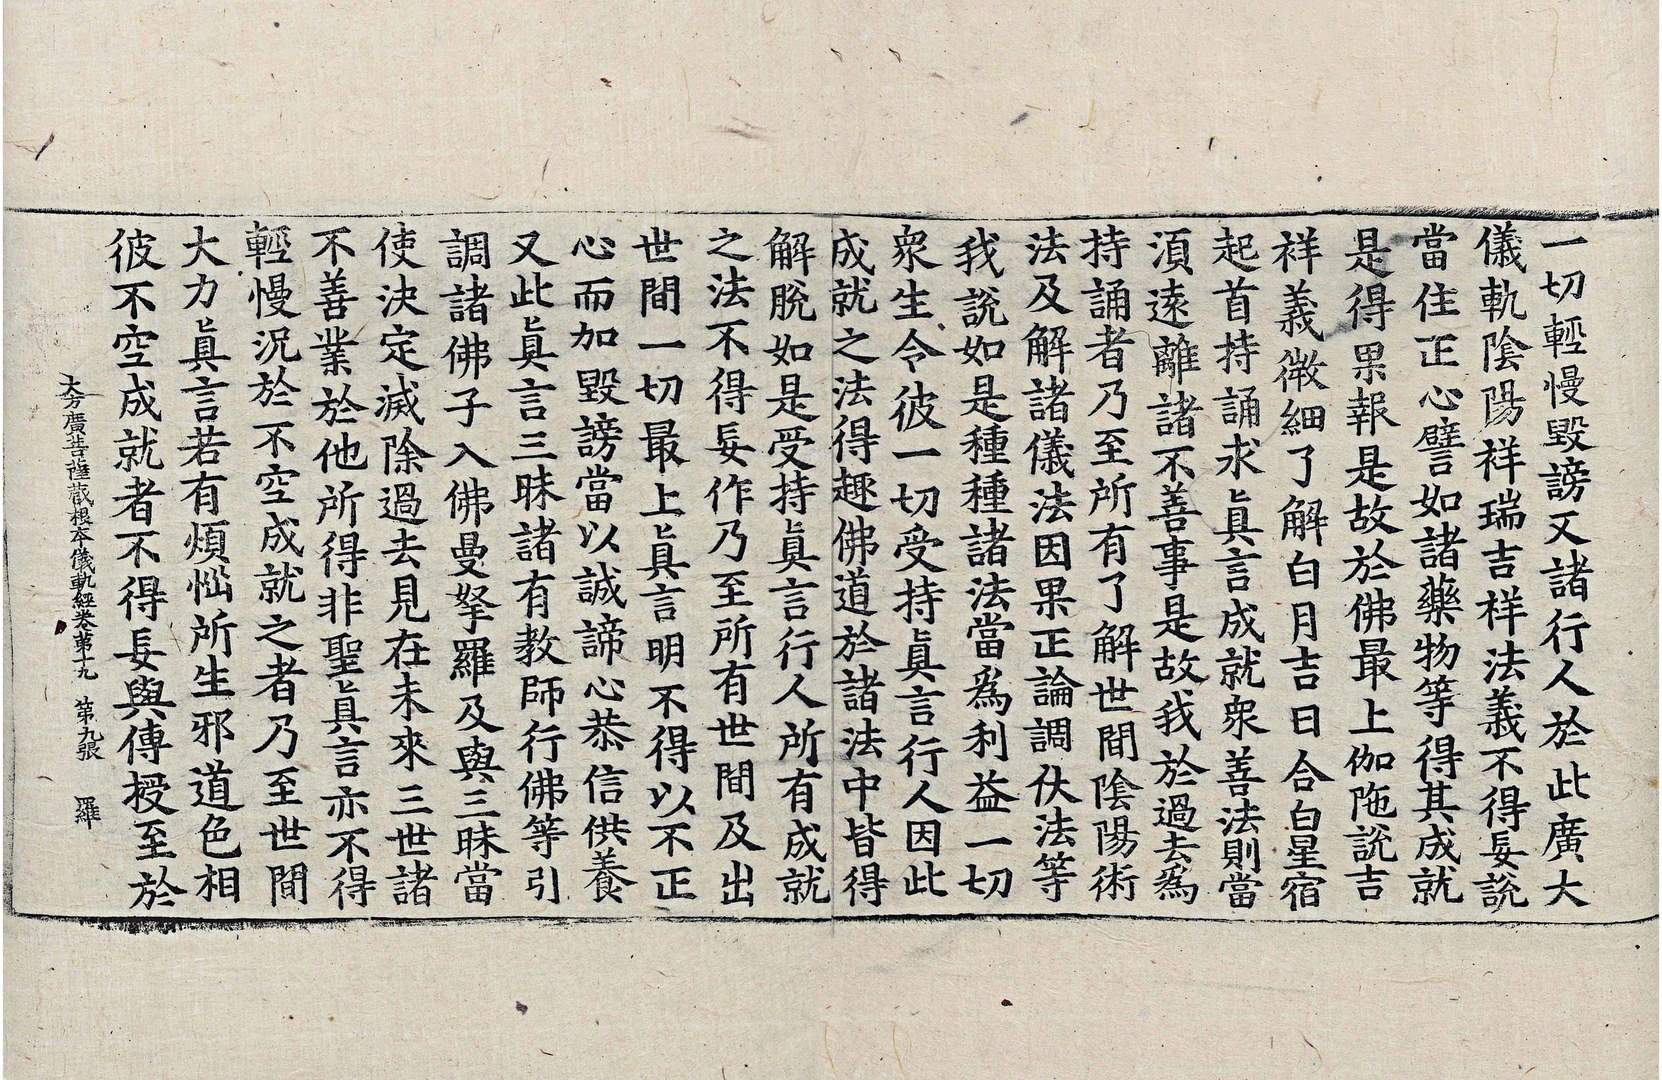 一切輕慢毀謗又諸行人於此廣大
儀軌陰陽祥瑞吉祥法義不得妄說
當住正心譬如諸藥物等得其成就
是得果報是故於佛最上伽陁説吉
祥義微細了解白月吉日合白星宿
起首持誦求眞言成就衆善法則當
湏遠離諸不善事是故我於過去為
持誦者乃至所有了解世間陰陽術
法及解諸儀法因果正論調伏法等
我説如是種種諸法當爲利益一切
衆生令彼一切受持眞言行人因此
成就之法得趣佛道於諸法中皆得
解脫如是受持眞言行人所有成就
之法不得妄作乃至所有世間及出
世間一切最上眞言明不得以不正
心而加毀謗當以誠諦心恭信供養
又此眞言三昧諸有教師行佛等引
調諸佛子入佛曼拏羅及與三昧當
使決定滅除過去見在未來三世諸
不善業於他所得非聖眞言亦不得
輕慢況於不空成就之者乃至世間
大力眞言若有煩惱所生邪道色相
彼不空成就者不得妄與傳授至於
大方廣菩薩藏根本儀軌經卷第十九 第九張 羅